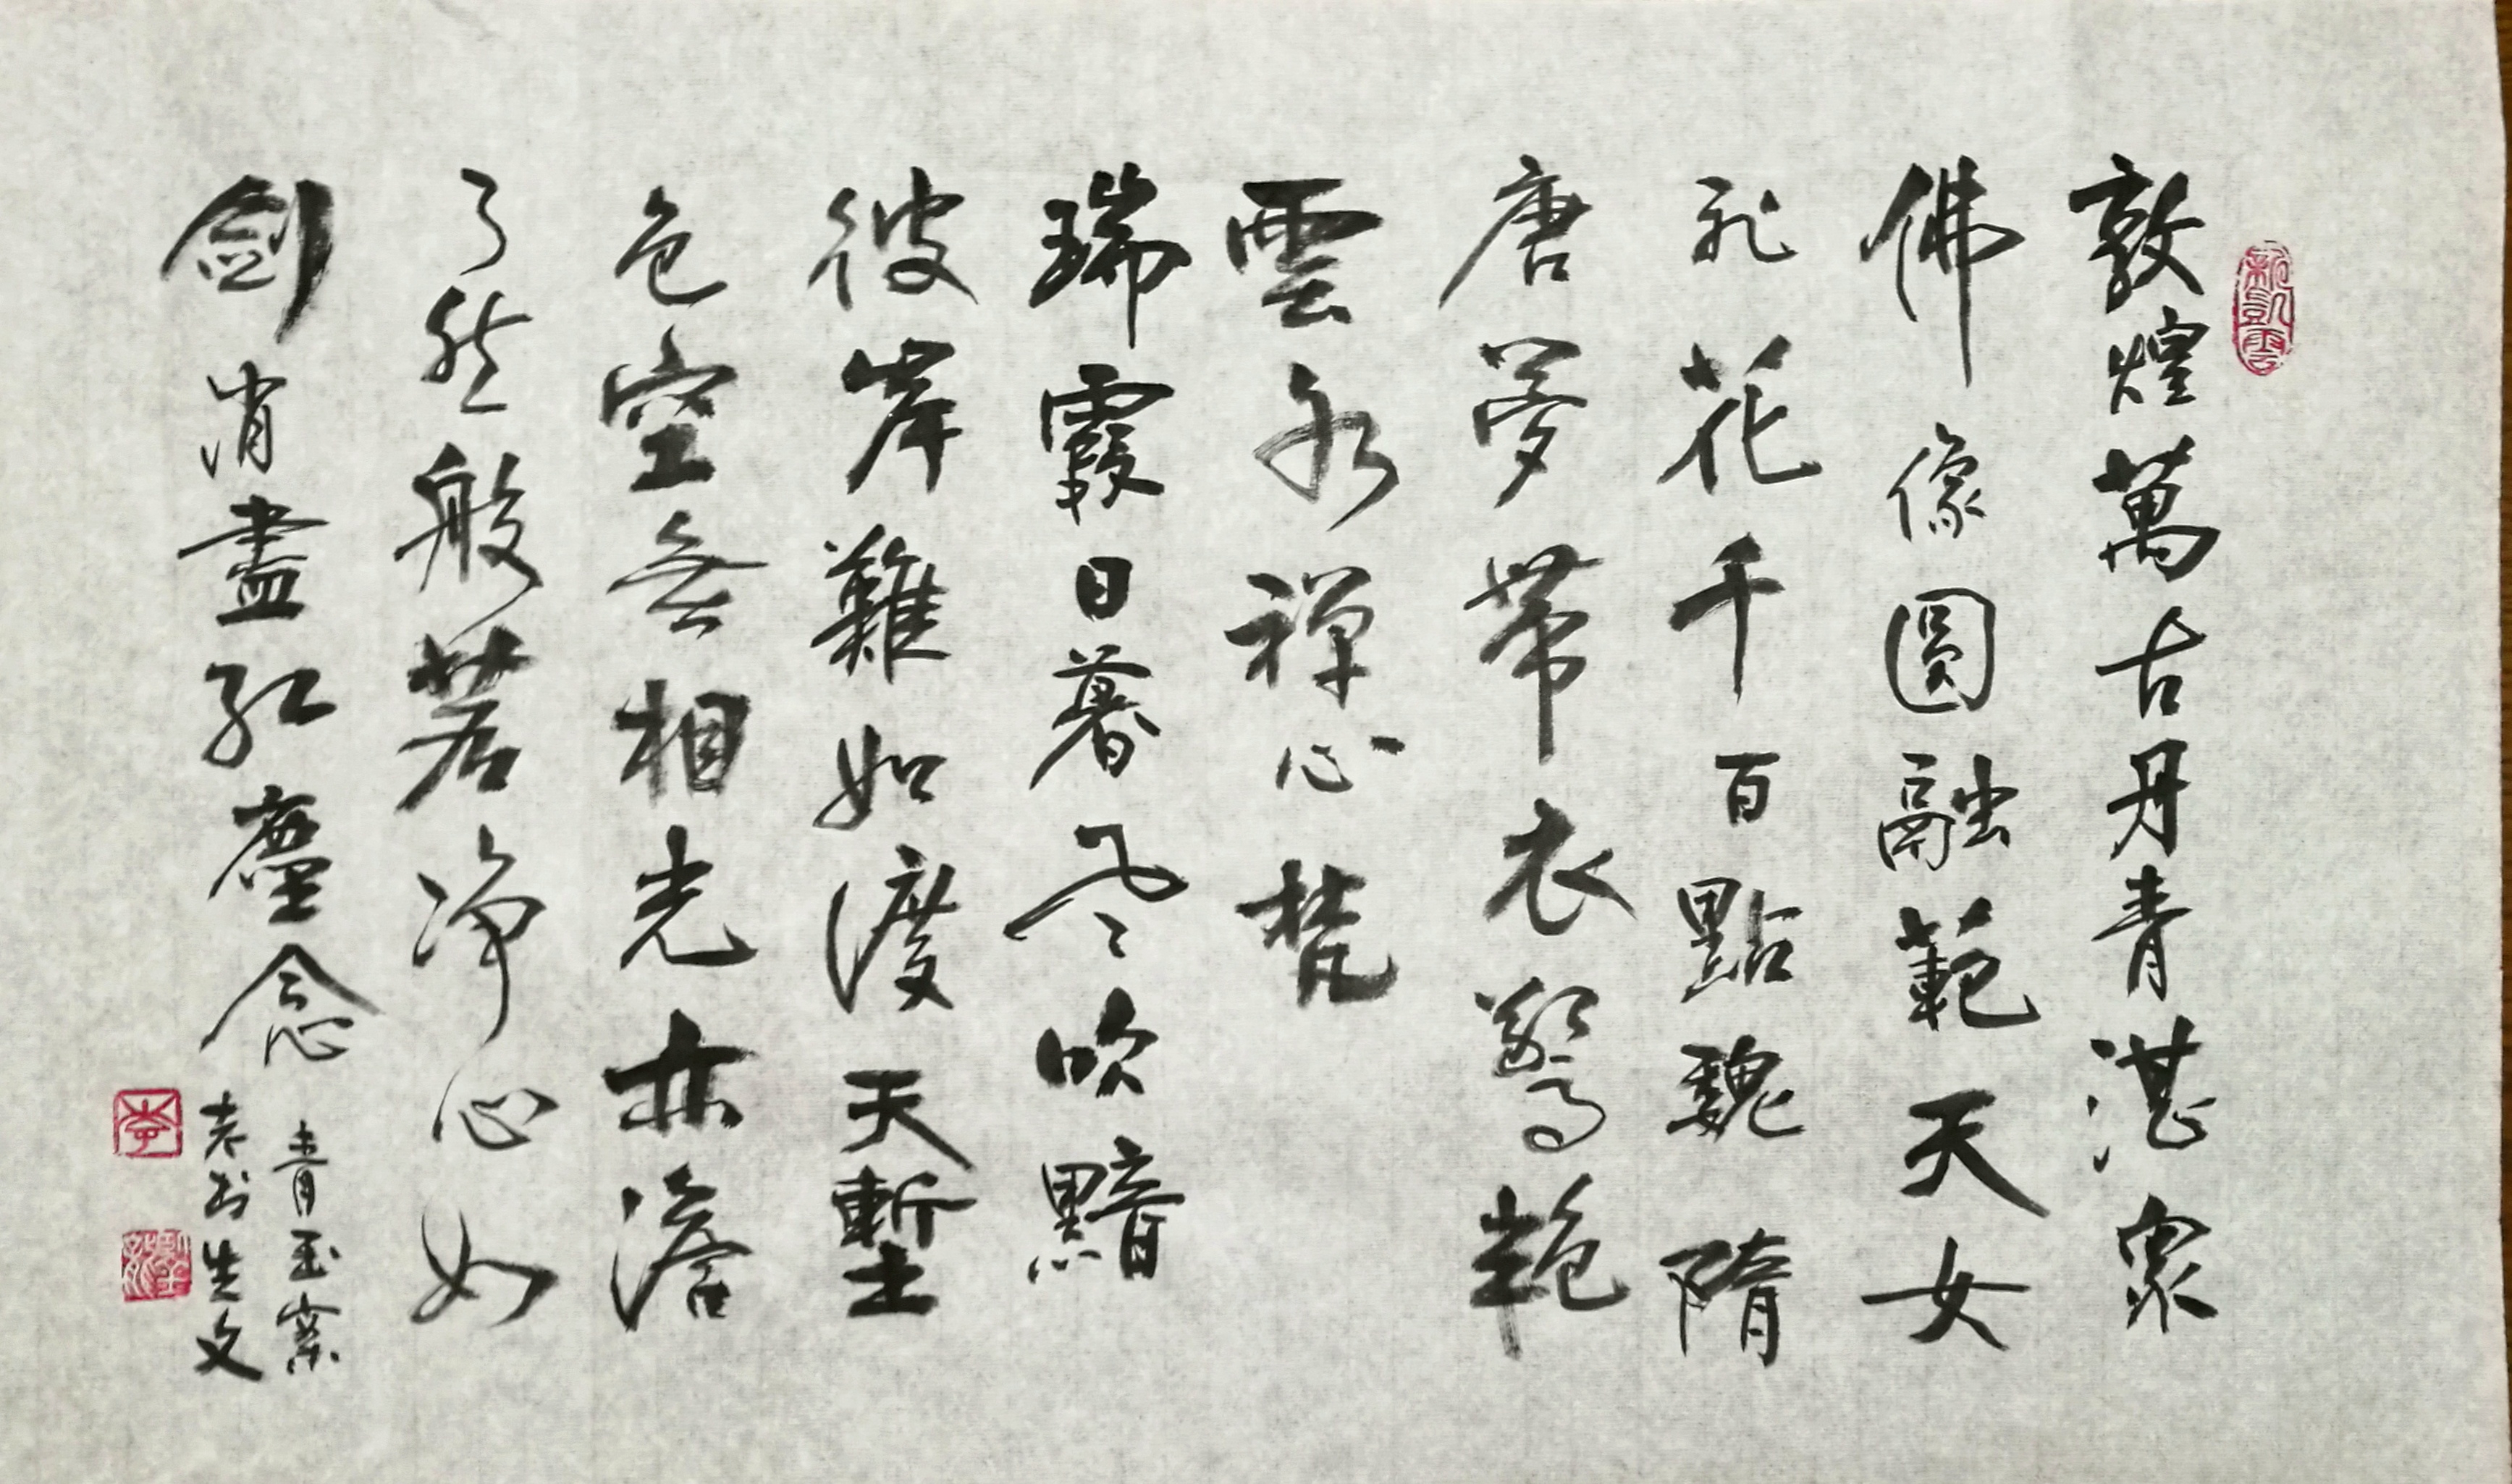 敦煌萬古丹青湛衆
佛像圓融範天女
飛花千百點魏隋
唐夢帶衣驚艶
雲水禪心梵
瑞霞日暮風吹黯
彼岸難如渡天塹
色空無相光亦澹
了然般若净心如
劍消盡紅塵念
青玉案
老书生文